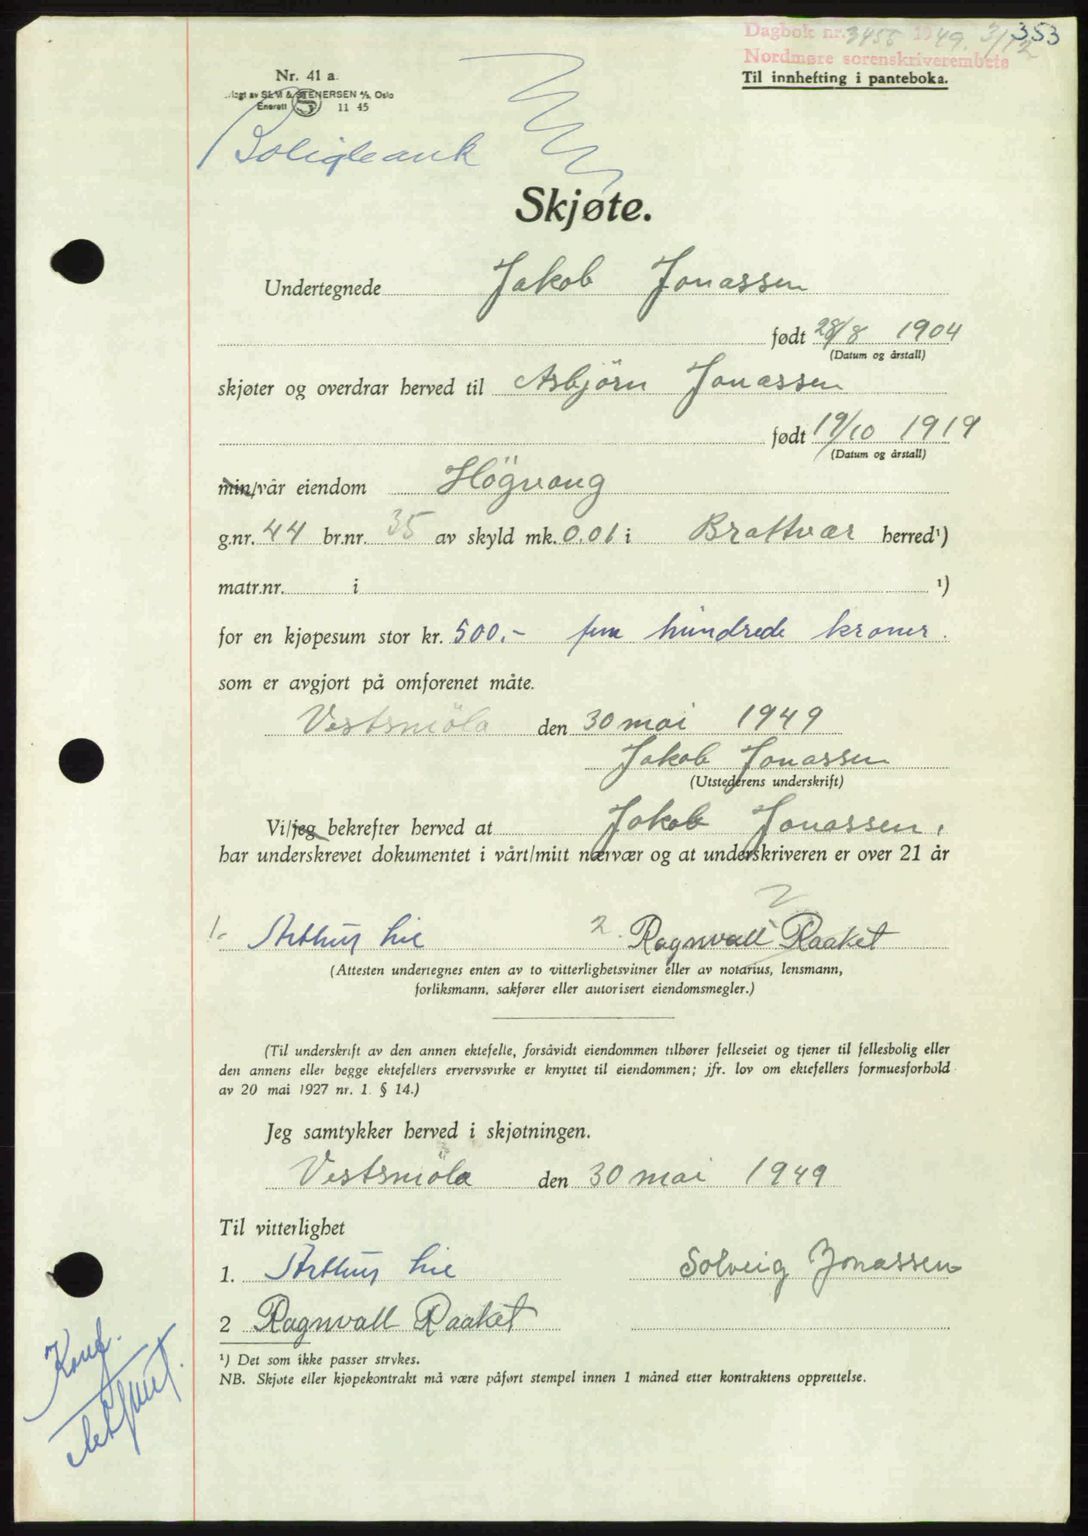 Dagbok nr. 3455 1949. 3/12 353
Nordmøre sorenskriverembete
Til innhefting i panteboka.
Nr. 41 a.
SEM & STENERSEN A/S, Oslo
Enerett 5 11 45
Boligbank
Skjøte.
Undertegnede Jakob Jonassen
født 28/8 1904
(Datum og årstall)
skjøter og overdrar herved til Asbjörn Jonassen
født 19/10 1919
(Datum og årstall)
min/vår eiendom Högvang
g.nr. 44 br.nr. 35 av skyld mk. 0.01 i Brattvær herred¹)
matr.nr. i ¹)
for en kjøpesum stor kr. 500.- fem hundrede kroner.
som er avgjort på omforenet måte.
Vestsmöla den 30 mai 1949
Jakob Jonassen
(Utstederens underskrift)
Vi/jeg bekrefter herved at Jakob Jonassen,
har underskrevet dokumentet i vårt/mitt nærvær og at underskriveren er over 21 år
1. Arthur Lie 2. Ragnvall Raaket
(Attesten undertegnes enten av to vitterlighetsvitner eller av notarius, lensmann,
forliksmann, sakfører eller autorisert eiendomsmegler.)
(Til underskrift av den annen ektefelle, forsåvidt eiendommen tilhører felleseiet og tjener til fellesbolig eller
den annens eller begge ektefellers ervervsvirke er knyttet til eiendommen; jfr. lov om ektefellers formuesforhold
av 20 mai 1927 nr. 1. § 14.)
Jeg samtykker herved i skjøtningen.
Vestsmöla den 30 mai 1949
Til vitterlighet
1. Arthur Lie Solveig Jonassen
2 Ragnvall Raaket
¹) Det som ikke passer strykes.
NB. Skjøte eller kjøpekontrakt må være påført stempel innen 1 måned etter kontraktens opprettelse.
Konf.